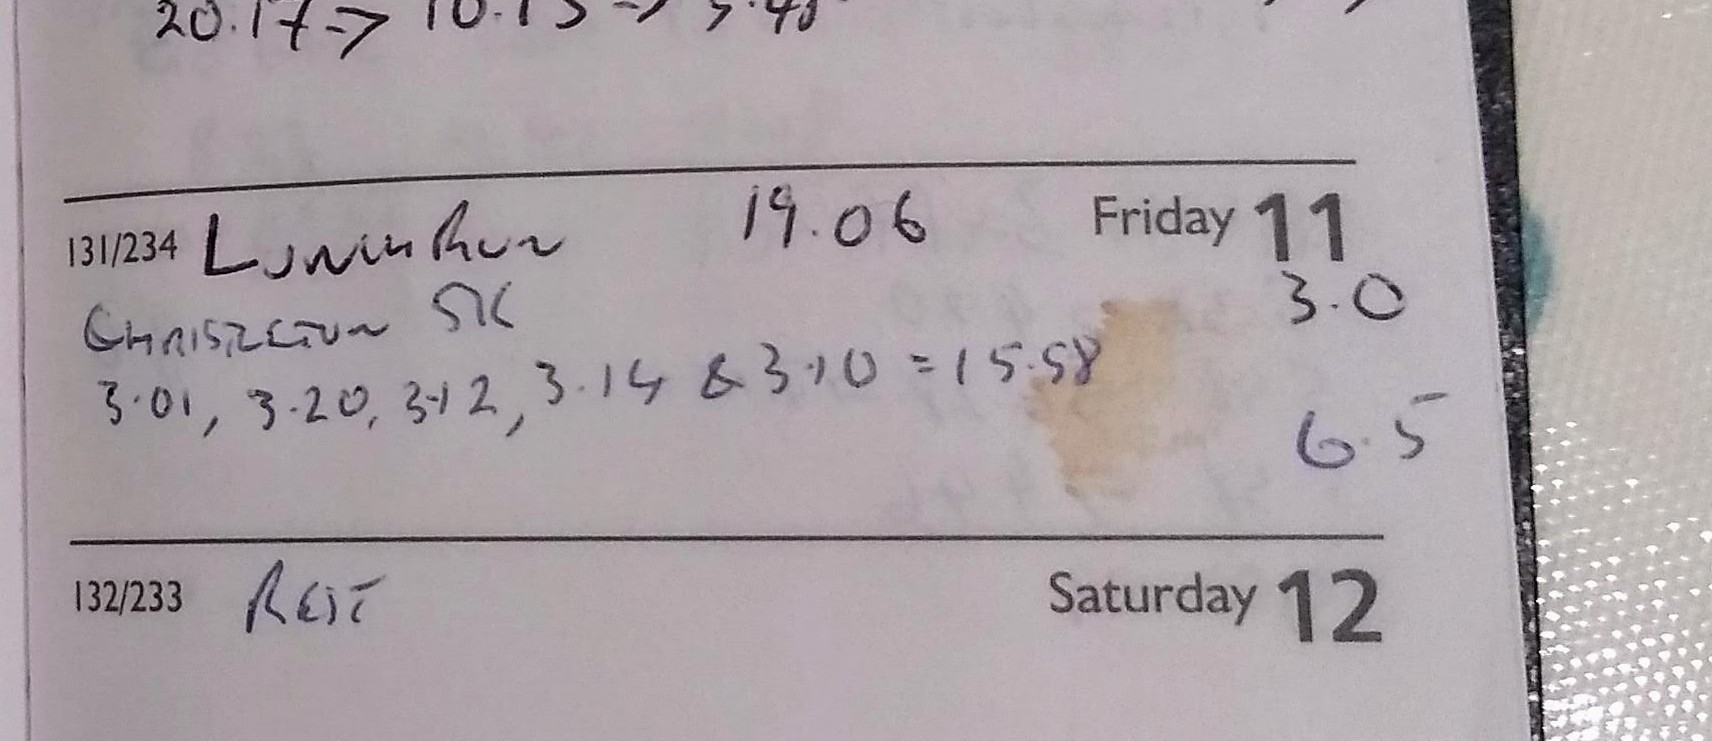 20.17 => 10.13 => 5.48
131/234 Lunch Run 19.06 Friday 11
3.0
Christleton 5K
3.01, 3.20, 3.12, 3.14 & 3.10 = 15.58
6.5
132/233 Rest Saturday 12